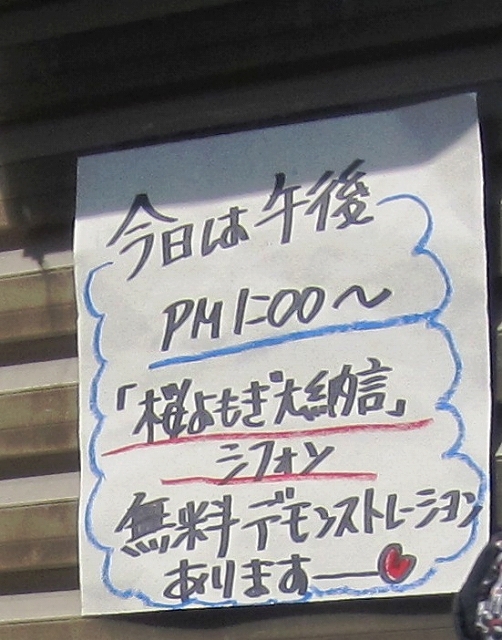 今日は午後
PM1:00〜
「桜よもぎ大納言」
シフォン
無料デモンストレーション
あります—